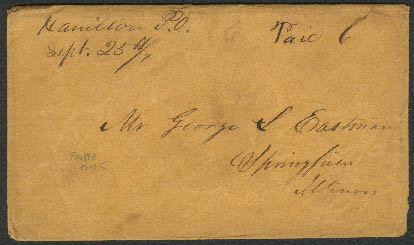 Hamilton P.O.
Sept. 25th
Paid 6
Mr George S Eastman
Springfield
Illinois